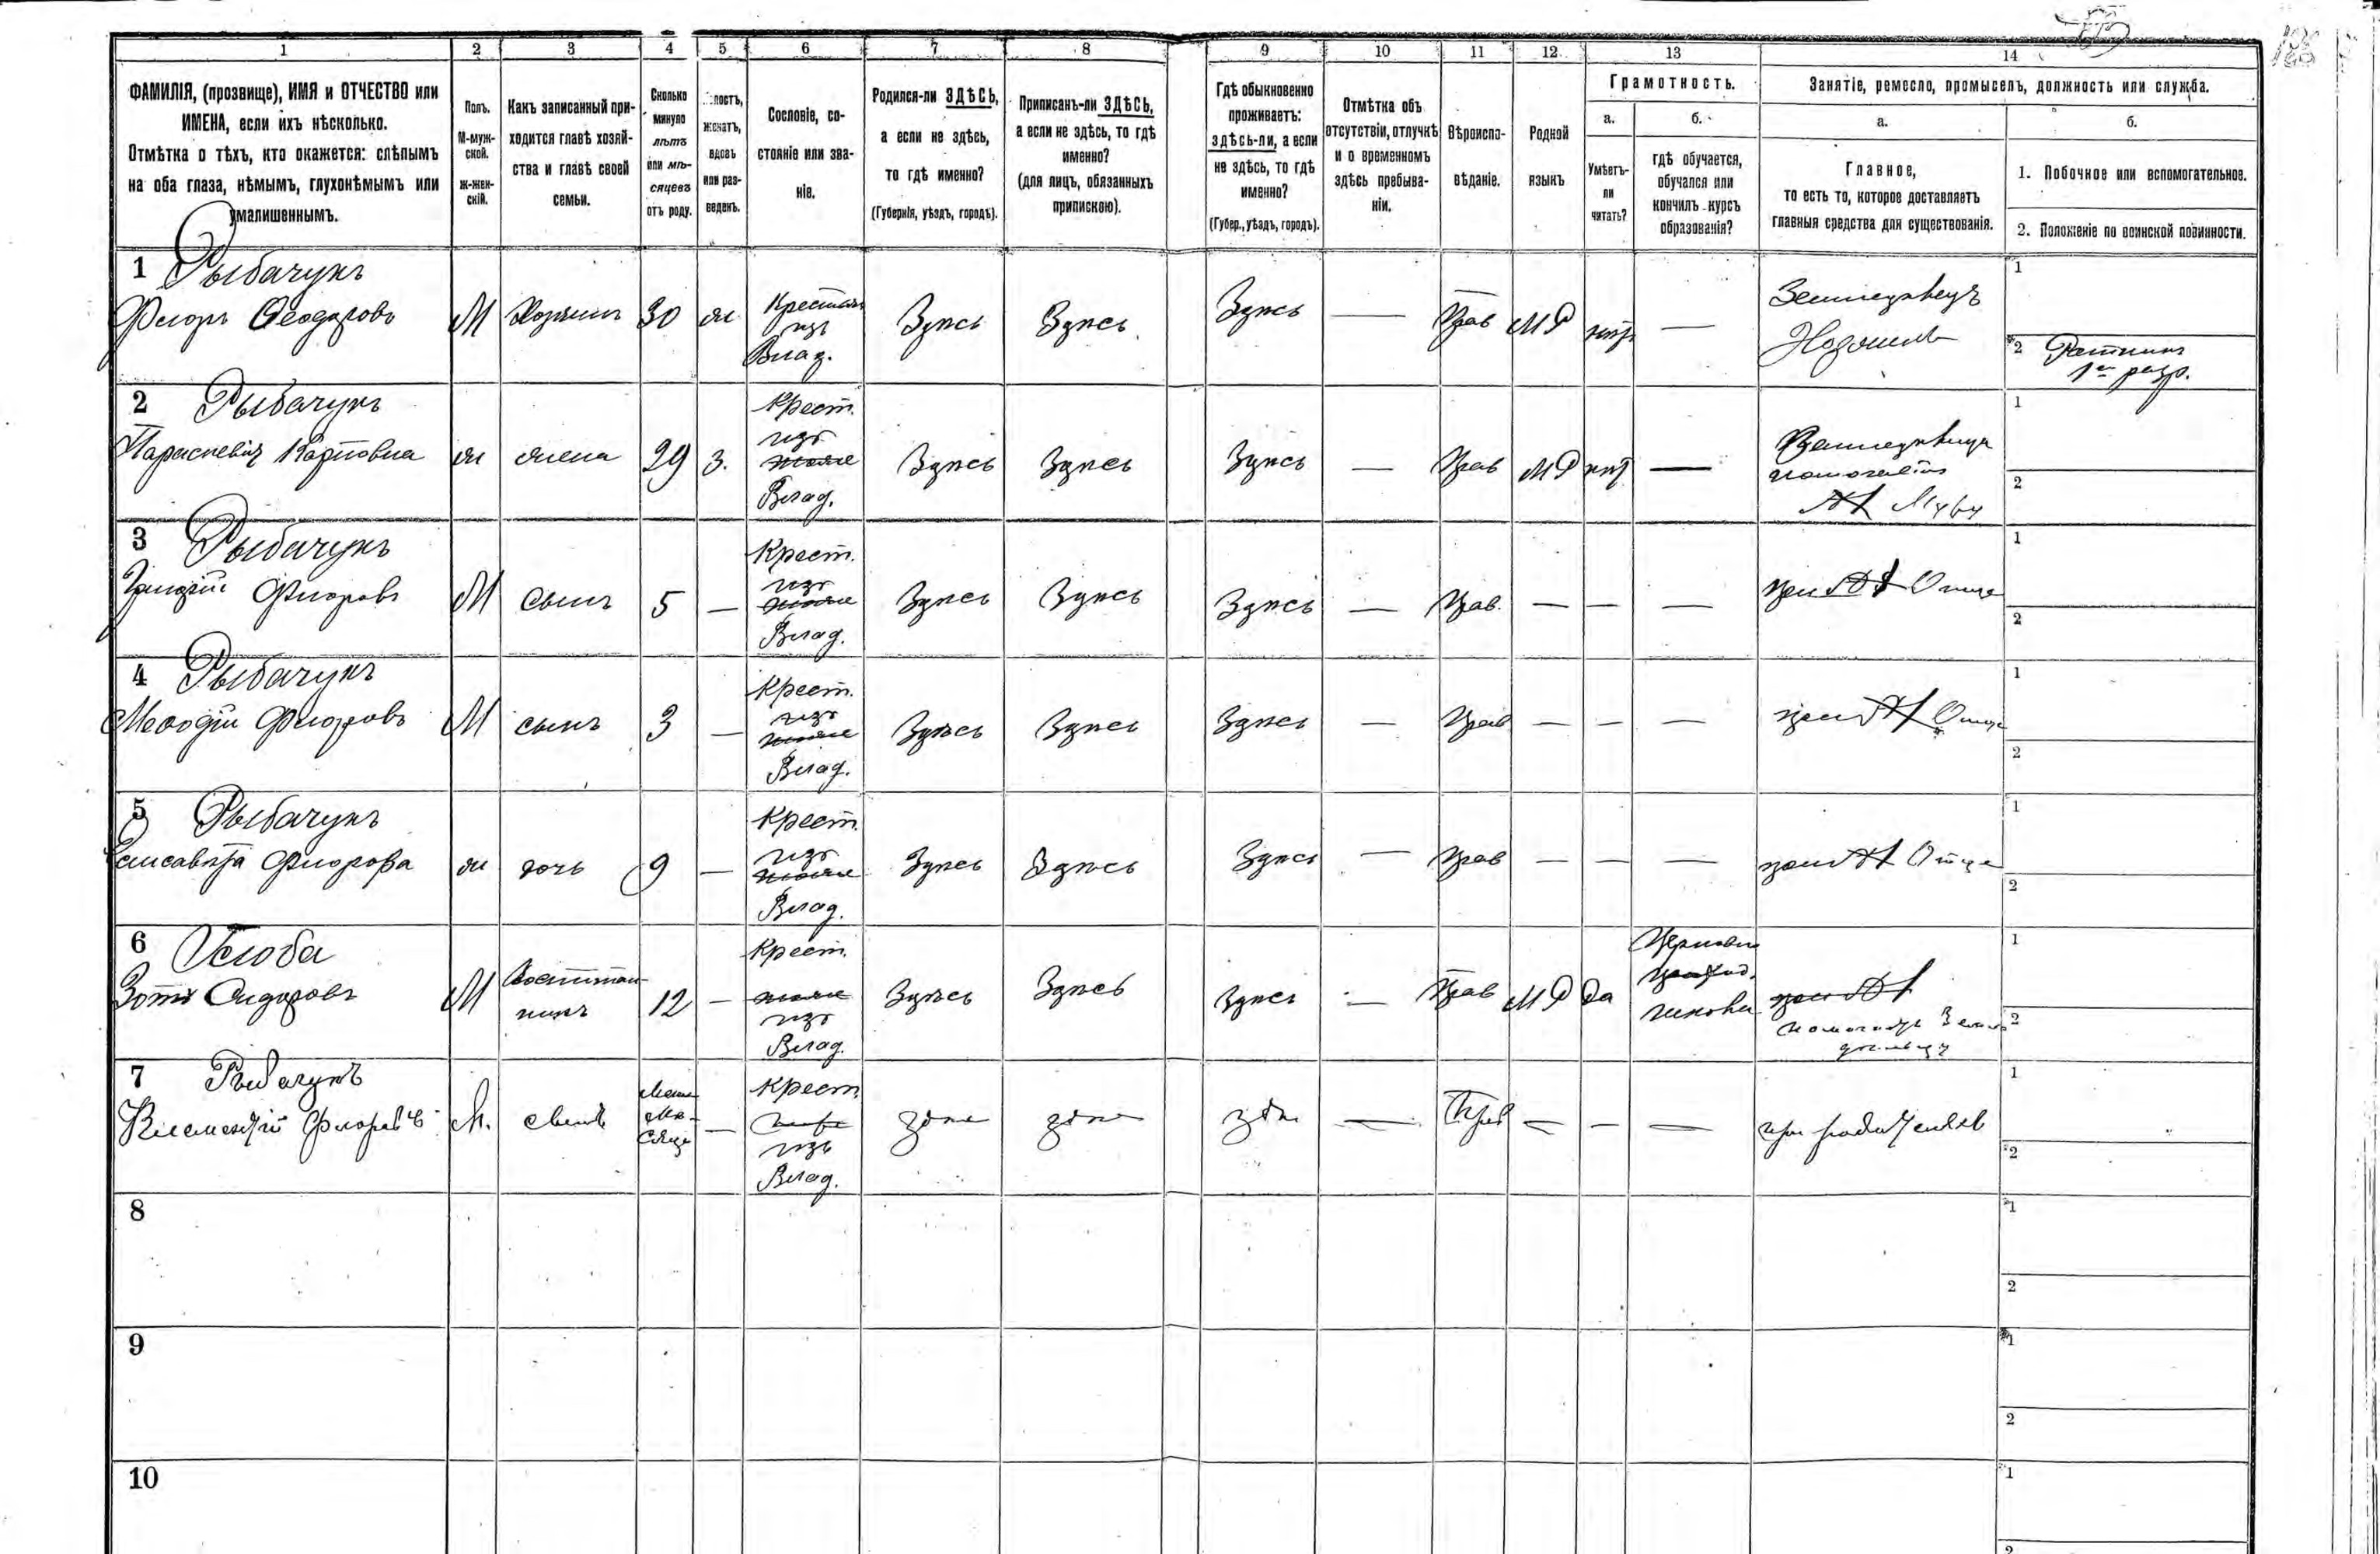 1 2 3 4 5 6 7 8 9 10 11 12 13 14
ФАМИЛІЯ, (прозвище), ИМЯ и ОТЧЕСТВО или
ИМЕНА, если ихъ нѣсколько.
Отмѣтка о тѣхъ, кто окажется: слѣпымъ
на оба глаза, нѣмымъ, глухонѣмымъ или
умалишеннымъ.
Полъ.
М-муж-
ской.
Ж-жен-
скій.
Какъ записанный при-
ходится главѣ хозяй-
ства и главѣ своей
семьи.
Сколько
минуло
лѣтъ
или мѣ-
сяцевъ
отъ роду.
лостъ,
женатъ,
вдовъ
или раз-
веденъ.
Сословіе, со-
стояніе или зва-
ніе.
Родился-ли ЗДѢСЬ,
а если не здѣсь,
то гдѣ именно?
(Губернія, уѣздъ, городъ).
Приписанъ-ли ЗДѢСЬ,
а если не здѣсь, то гдѣ
именно?
(для лицъ, обязанныхъ
припискою).
Гдѣ обыкновенно
проживаетъ:
здѣсь-ли, а если
не здѣсь, то гдѣ
именно?
(Губер., уѣздъ, городъ).
Отмѣтка объ
отсутствіи, отлучкѣ
и о временномъ
здѣсь пребыва-
ніи.
Вѣроиспо-
вѣданіе.
Родной
языкъ
Грамотность.
а.
Умѣетъ-
ли
читать?
б.
гдѣ обучается,
обучался или
кончилъ курсъ
образованія?
Занятіе, ремесло, промыселъ, должность или служба.
а.
Главное,
то есть то, которое доставляетъ
главныя средства для существованія.
б.
1. Побочное или вспомогательное.
2. Положеніе по воинской повинности.
1 Рыбачукъ
Флоръ Ѳеодоровъ М Хозяинъ 30 ж Крестьян изъ Влад. Здѣсь Здѣсь Здѣсь — Прав МР нѣт — Земледѣлецъ
1
2 Ратникъ
1го разр.
2 Рыбачукъ
Параскевія Карповна ж жена 29 з. Крест. изъ Влад. Здѣсь Здѣсь Здѣсь — Прав МР нѣт —
Мужу
1
2
3 Рыбачукъ
Флоровъ М сынъ 5 — Крест. изъ Влад. Здѣсь Здѣсь Здѣсь — Прав. — — — при Отце
1
2
4 Рыбачукъ
Меѳодій Флоровъ М сынъ 3 — Крест. изъ Влад. Здѣсь Здѣсь Здѣсь — Прав — — — при Отце
1
2
5 Рыбачукъ
Елисавета Флорова ж дочь 9 — Крест. изъ Влад. Здѣсь Здѣсь Здѣсь — Прав — — — при Отце
1
2
6
Зотъ Сидоровъ М Воспитан-
никъ 12 — Крест. изъ Влад. Здѣсь Здѣсь Здѣсь — Прав МР Да
1
2
7 Рыбачукъ
Климентій Флоровъ М. сынъ — Крест. изъ Влад. здѣс здѣс здѣс — Прав — — — при родителяхъ
1
2
8
1
2
9
1
2
10
1
2